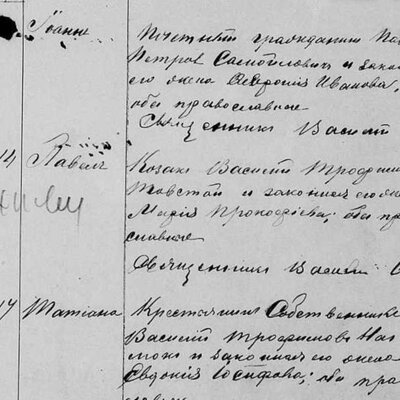 Іоаннъ
Почетный гражданинъ
Петров Самойловичъ и зако
его жена Евфросинія Иванова,
оба православные
Священникъ Василій
14 Павелъ
Козакъ Василій Трофим
Товстой и законная его ж
Марія Прокофіева; оба пра
славные
Священникъ Василій
17 Татіана
Крестьянинъ Собственникъ
Василій Трофимовъ
и законная его жена
Евдокія Іосифова; оба пра
славные